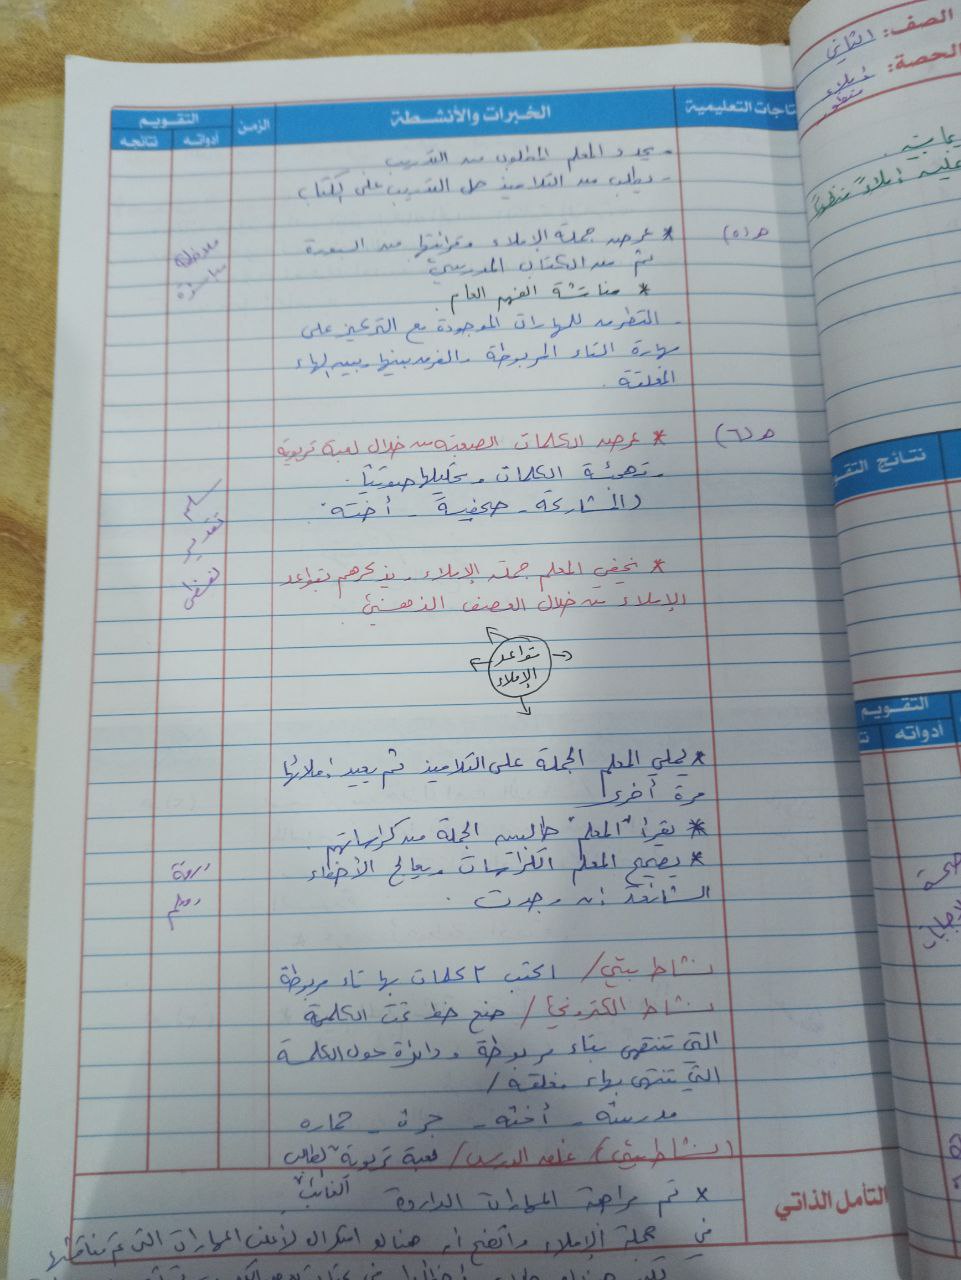 الصف: الثاني
الحصة: إملاء منظور
إملاءً منظوراً
نتائج التقو
التقويم
أدواته
تاجات التعليمية
الخبرات والأنشطة
الزمن
التقويم
أدواته
نتائجه
- يحدد المعلم المطلوب من التدريب
- يطلب من التلاميذ حل التدريب على الكتاب
* عرض جملة الإملاء وقرائتها من السبورة
ثم من الكتاب المدرسي
ملاحظة
مباشرة
* مناقشة الفهم العام
- التطرق للمهارات الموجودة مع التركيز على
مهارة التاء المربوطة والفرق بينها وبين الهاء
المغلقة .
* عرض الكلمات الصعبة من خلال لعبة تربوية
- تهجئة الكلمات وتحليلها صوتياً .
( المشاركة - صحفية - أخته )
سلم
تقدير
لفظي
* يخفي المعلم جملة الإملاء ويذكرهم بقواعد
الإملاء من خلال العصف الذهني .
قواعد
الإملاء
* يملي المعلم الجملة على التلاميذ ثم يعيد إملائها
مرة أخرى
* يقرأ "المعلم" الجملة من كراساتهم .
* يصحح المعلم الكراسات ويعالج الأخطاء
الشائعة إن وجدت .
ورقة
وقلم
نشاط بيتي / اكتب ٢ كلمات بها تاء مربوطة
نشاط الكتروني / ضع خط تحت الكلمة
التي تنتهي بتاء مربوطة ودائرة حول الكلمة
التي تنتهي بهاء مغلقة /
مدرسة - أخته - جرة - حماره
(نشاط بيتي) غلق الدرس / لعبة تربوية "الطالب
الغائب"
التأمل الذاتي
* تم مراجعة المهارات الواردة
في جملة الإملاء واتضح أن هنالك لأغلب المهارات التي تم مناقشتها